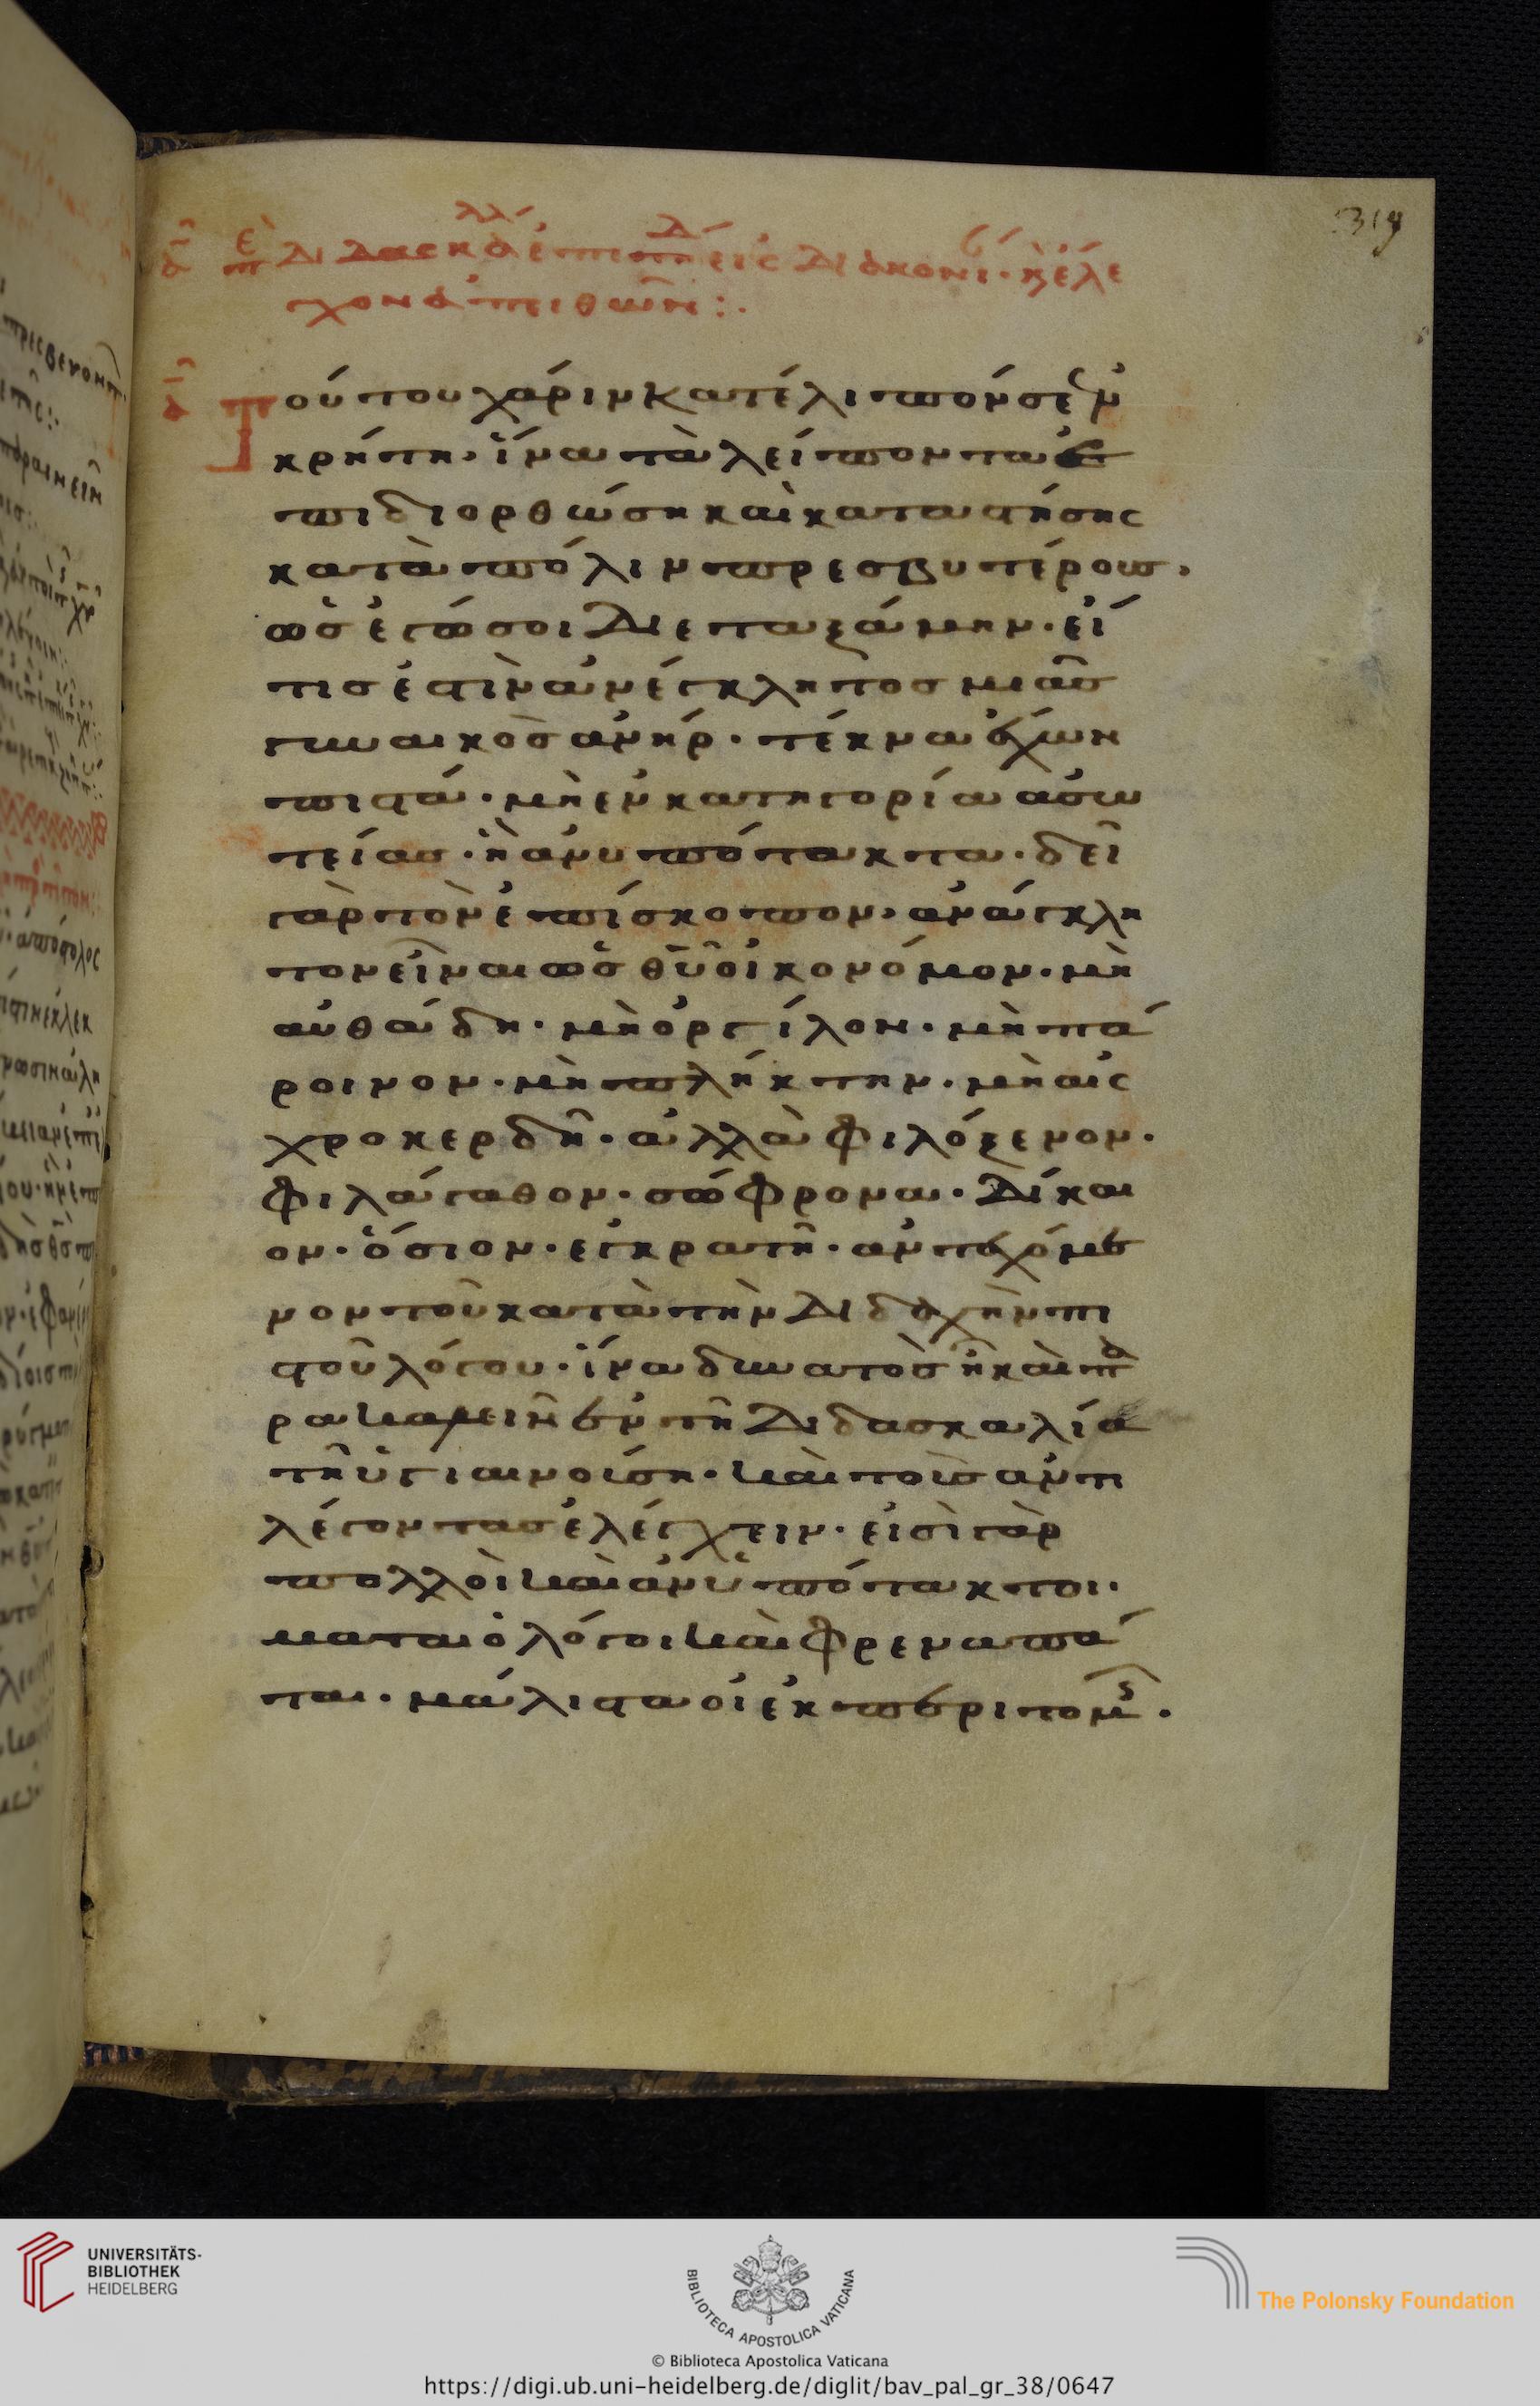 319
χον ἀπειθῶν :·
Τούτου χάριν κατέλιπόν σε ἐν
κρήτη· ἵνα τὰ λείποντα ἐ
πιδιορθώση καὶ καταστήσης
κατὰ πόλιν πρεσβυτέρους,
ὡς ἐγώ σοι διεταξάμην· εἴ
τις ἐστὶν ἀνέγκλητος μιᾶς
γυναικὸς ἀνήρ· τέκνα ἔχων
πιστά· μὴ ἐν κατηγορία ἀσω
τείας· ἢ ἀνυπότακτα· δεῖ
γὰρ τὸν ἐπίσκοπον, ἀνέγκλη
τον εἶναι ὡς θῦ οἰκονόμον· μὴ
αὐθάδη· μὴ ὀργίλον· μὴ πά
ροινον· μὴ πλήκτην· μὴ αἰς
χροκερδῆ· ἀλλὰ φιλόξενον·
φιλάγαθον· σώφρονα· δίκαι
ον· ὅσιον· εγκρατῆ· ἀντεχόμε
νον τοῦ κατὰ τὴν διδαχὴν πι
στοῦ λόγου· ἵνα δυνατὸς ἦ καὶ πα
ρακαλεῖν ἐν τῆ διδασκαλία
τῆ ὑγιαινούση· καὶ τοὺς ἀντι
λέγοντας ἐλέγχειν· εἰσὶ γὰρ
πολλοὶ καὶ ἀνυπότακτοι·
ματαιολόγοι καὶ φρεναπά
ται· μάλιστα οἱ ἐκ περιτομῆς·
UNIVERSITÄTS-
BIBLIOTHEK
HEIDELBERG
BIBLIOTECA APOSTOLICA VATICANA
The Polonsky Foundation
© Biblioteca Apostolica Vaticana
https://digi.ub.uni-heidelberg.de/diglit/bav_pal_gr_38/0647